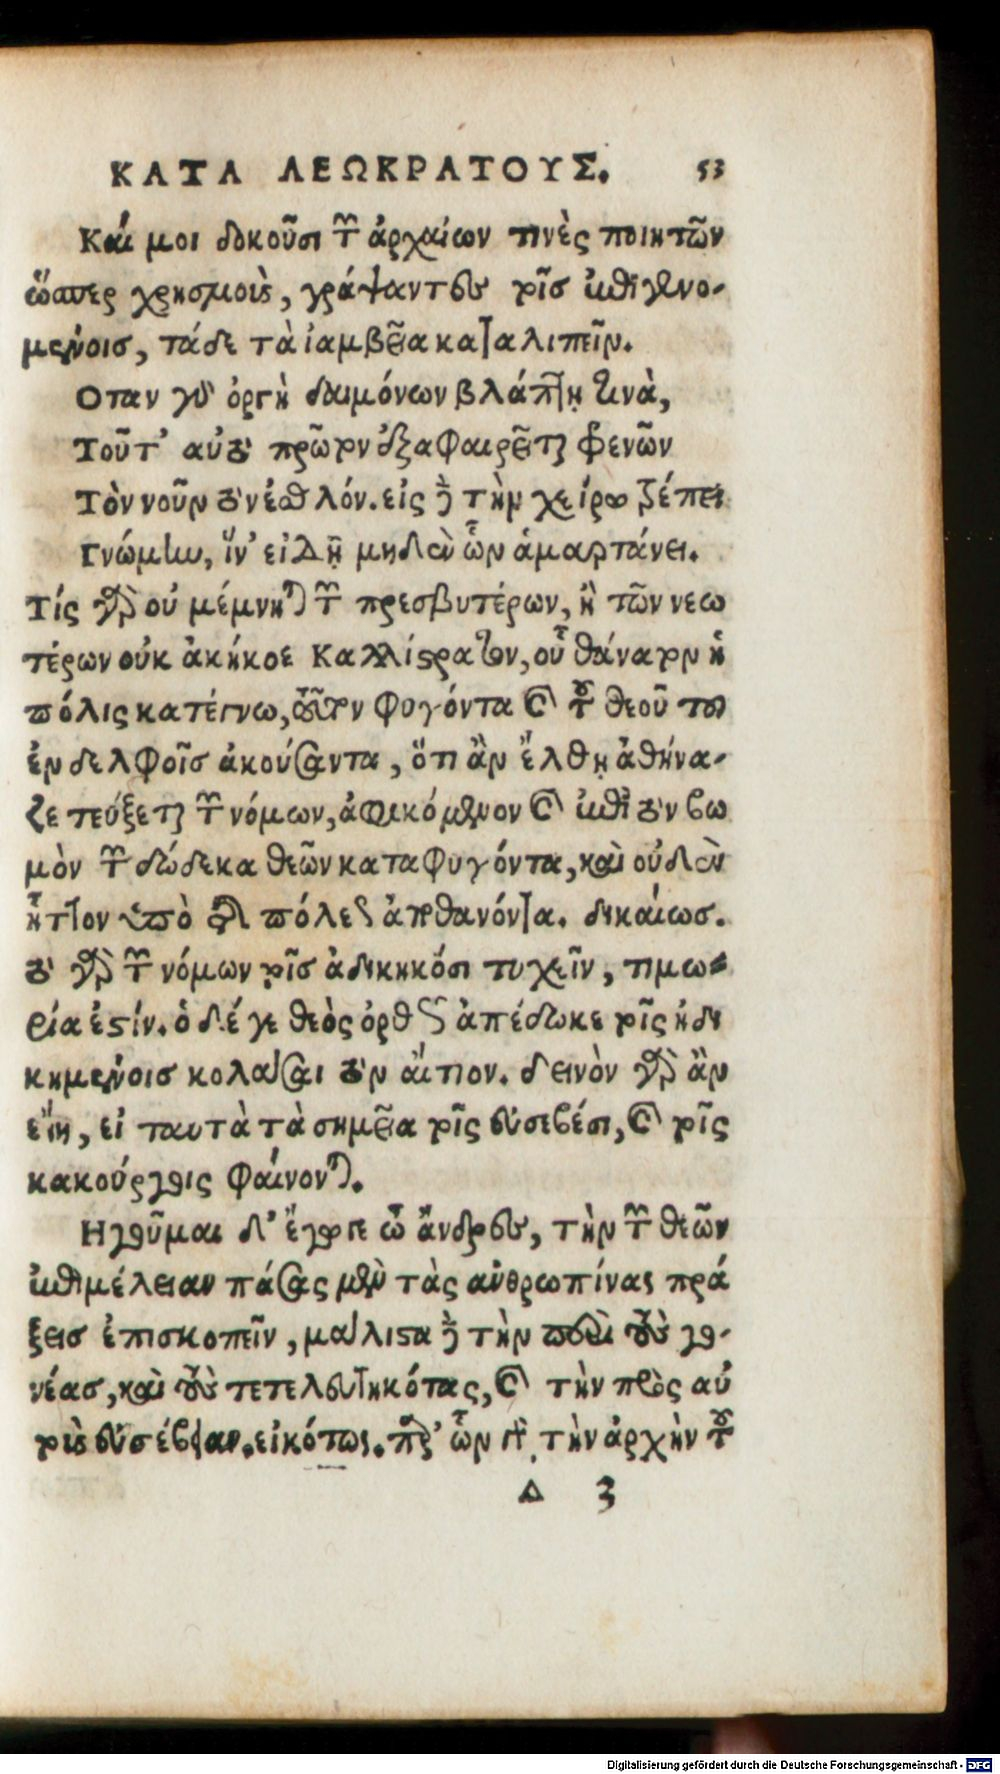 ΚΑΤΑ ΛΕΩΚΡΑΤΟΥΣ. 53
Καί μοι δοκοῦσι τῶν ἀρχαίων τινὲς ποιητῶν
ὥσπερ χρησμοὺς, γράψαντες τοῖς ἐπιγενο-
μένοις, τάδε τὰ ἰαμβεῖα καταλιπεῖν.
Οταν γὰρ ὀργὴ δαιμόνων βλάπτῃ τινὰ,
Τοῦτ' αὐτὸ πρῶτον ἐξαφαιρεῖται φρενῶν
Τὸν νοῦν τὸν ἐσθλόν. εἰς δὲ τὴν χείρω τρέπει
Γνώμην, ἵν' εἰδῇ μηδὲν ὧν ἁμαρτάνει.
Τίς γὰρ οὐ μέμνηται τῶν πρεσβυτέρων, ἢ τῶν νεω
τέρων οὐκ ἀκήκοε Καλλίστρατον, οὗ θάνατον ἡ
πόλις κατέγνω, τοῦτον φυγόντα καὶ τοῦ θεοῦ τοῦ
ἐν δελφοῖς ἀκούσαντα, ὅτι ἂν ἔλθῃ ἀθήνα-
ζε τεύξεται τῶν νόμων, ἀφικόμενον καὶ ἐπὶ τὸν βω
μὸν τῶν δώδεκα θεῶν καταφυγόντα, καὶ οὐδὲν
ἧττον ὑπὸ τῆς πόλεως ἀποθανόντα. δικαίως.
τὸ γὰρ τῶν νόμων τοῖς ἀδικηκόσι τυχεῖν, τιμω-
ρία ἐστίν. ὁ δέ γε θεὸς ὀρθῶς ἀπέδωκε τοῖς ἠδι
κημένοις κολάσαι τὸν αἴτιον. δεινὸν γὰρ ἂν
εἴη, εἰ ταυτὰ τὰ σημεῖα τοῖς εὐσεβέσι, καὶ τοῖς
κακούργοις φαίνοντο.
Ηγοῦμαι δ' ἔγωγε ὦ ἄνδρες, τὴν τῶν θεῶν
ἐπιμέλειαν πάσας μὲν τὰς ἀνθρωπίνας πρά
ξεις ἐπισκοπεῖν, μάλιστα δὲ τὴν περὶ τοὺς γο-
νέας, καὶ τοὺς τετελευτηκότας, καὶ τὴν πρὸς αὐ
τοὺς εὐσέβειαν. εἰκότως. παρ' ὧν γὰρ τὴν ἀρχὴν τοῦ
Δ 3
Digitalisierung gefördert durch die Deutsche Forschungsgemeinschaft - DFG